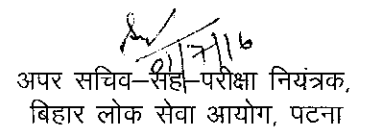 01/7/16
अपर सचिव–सह–परीक्षा नियंत्रक,
बिहार लोक सेवा आयोग, पटना